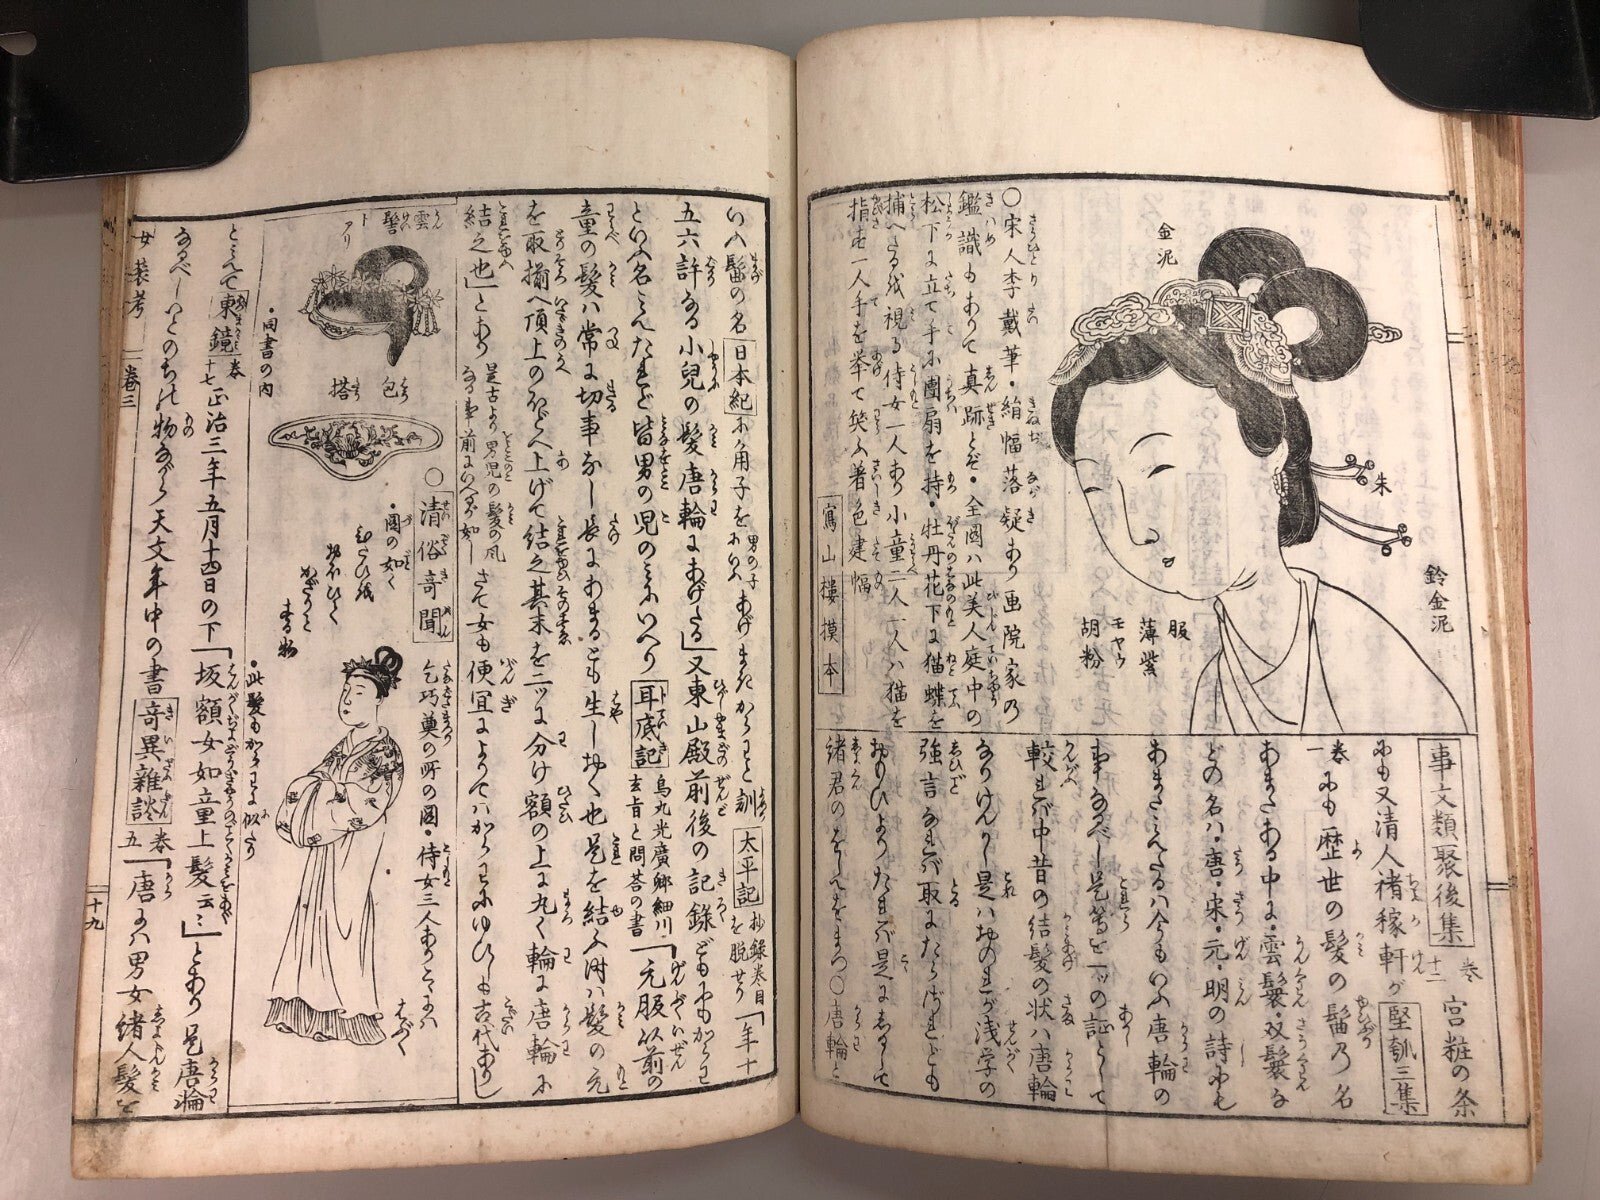 金泥
朱
鈴金泥
服
薄紫
モヤウ
胡粉
○宋人李戴華・絹幅落疑あり画院家乃
鑑識もありて真跡とぞ・全圖ハ此美人庭中の
松下に立て手に團扇を持・牡丹花下に猫蝶を
捕へさるを視る侍女一人あり小童二人一人ハ猫を
指さし一人手を挙て笑ふ著色建幅
寫山樓摸本
事文類聚後集 卷十二 宮粧の条
にも又清人褚稼軒が堅瓠三集
卷一にも歴世の髪の髷乃名
あまたある中に・雲鬟・双鬟な
どの名ハ・唐・宋・元・明の詩にも
あまたみえたるハ今もいふ唐輪の
事なるべし是等を一ツの証として
較れバ中昔の結髪の状ハ唐輪
なりけんかし是ハおのれが浅学の
強言なれバ取にたらざれども
おもひよりたれバ是にしるして
諸君の をまつ○唐輪と
いふ髷の名日本紀に角子を男の子にいふあげまきからわと訓太平記抄録巻目を脱せり「年十
五六許なる小兒の髪唐輪にあげたる」又東山殿前後の記録どもにもからわ
といふ名みえたれど皆男の児のみにいへり耳底記烏丸光廣卿細川玄旨と問荅の書「元服以前の
童の髪ハ常に切事なし長にあまるとも生しおく也是を結ふ時ハ髪の元
を取揃へ頂上のほどへ上げて結之其末を二ッに分け額の上に丸く輪に唐輪に
結之也」とあり是古より男児の髪の風なる事前にいへるが如しさて女も便宜によりてハからわにゆひしも古代ありし
雲髻 トアリ
包 搭
・同書の内
○清俗奇聞
乞巧奠の所の圖・侍女三人ありこゝにハはぶく
・圖の如く
・此髪もからわに似たり
とみえて東鏡卷十七正治三年五月十四日の下「坂額女如童上髪云々」とあり是唐輪
なるべしいとのちの物ながら天文年中の書奇異雑談卷五「唐にハ男女諸人髪を
女装考 卷三 十九